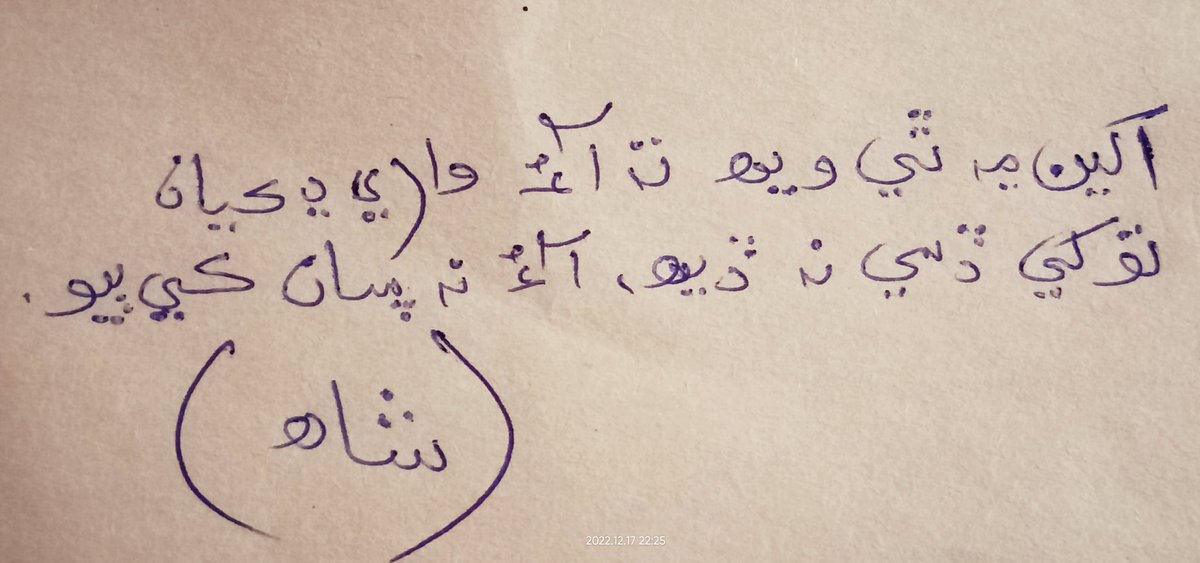 اکين ۾ ٿي ويھ تہ آءٌ واري ڍڪيان
توکي ڏسي نہ ڏيھ، آءٌ نہ پسان ڪي ٻيو.
(شاھ)
2022.12.17 22:25